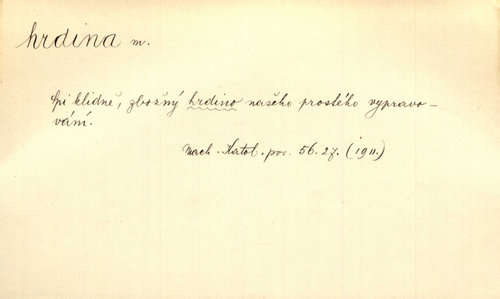 hrdina m.
Spi klidně, zbožný hrdino našeho prostého vypravo-
vání.
Mach. Katol. pov. 56.27. (1911.)